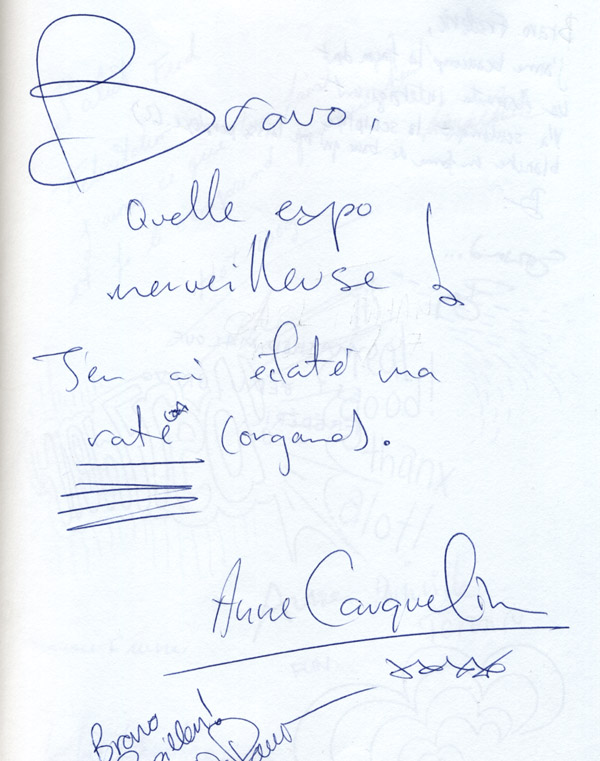 Bravo.
Quelle expo
merveilleuse !
J'en ai éclaté ma
rate (organe).
Anne Cauquelin
xxxx
Bravo